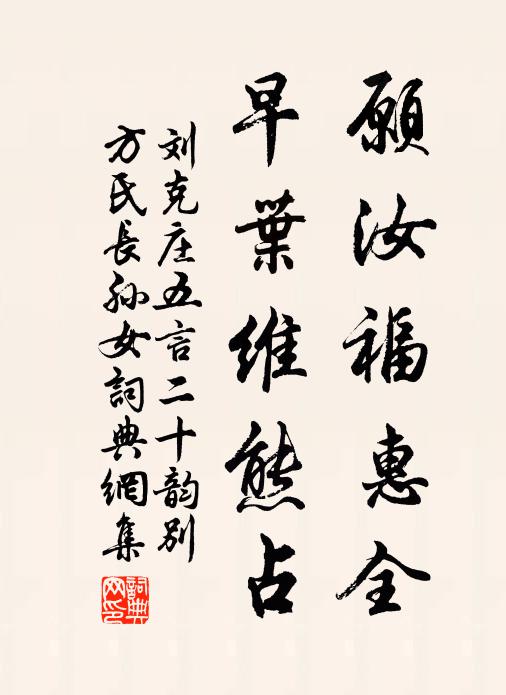 願汝福惠全
早葉維熊占
刘克庄五言二十韵别
方氏長孫女詞典網集
詞典
网印